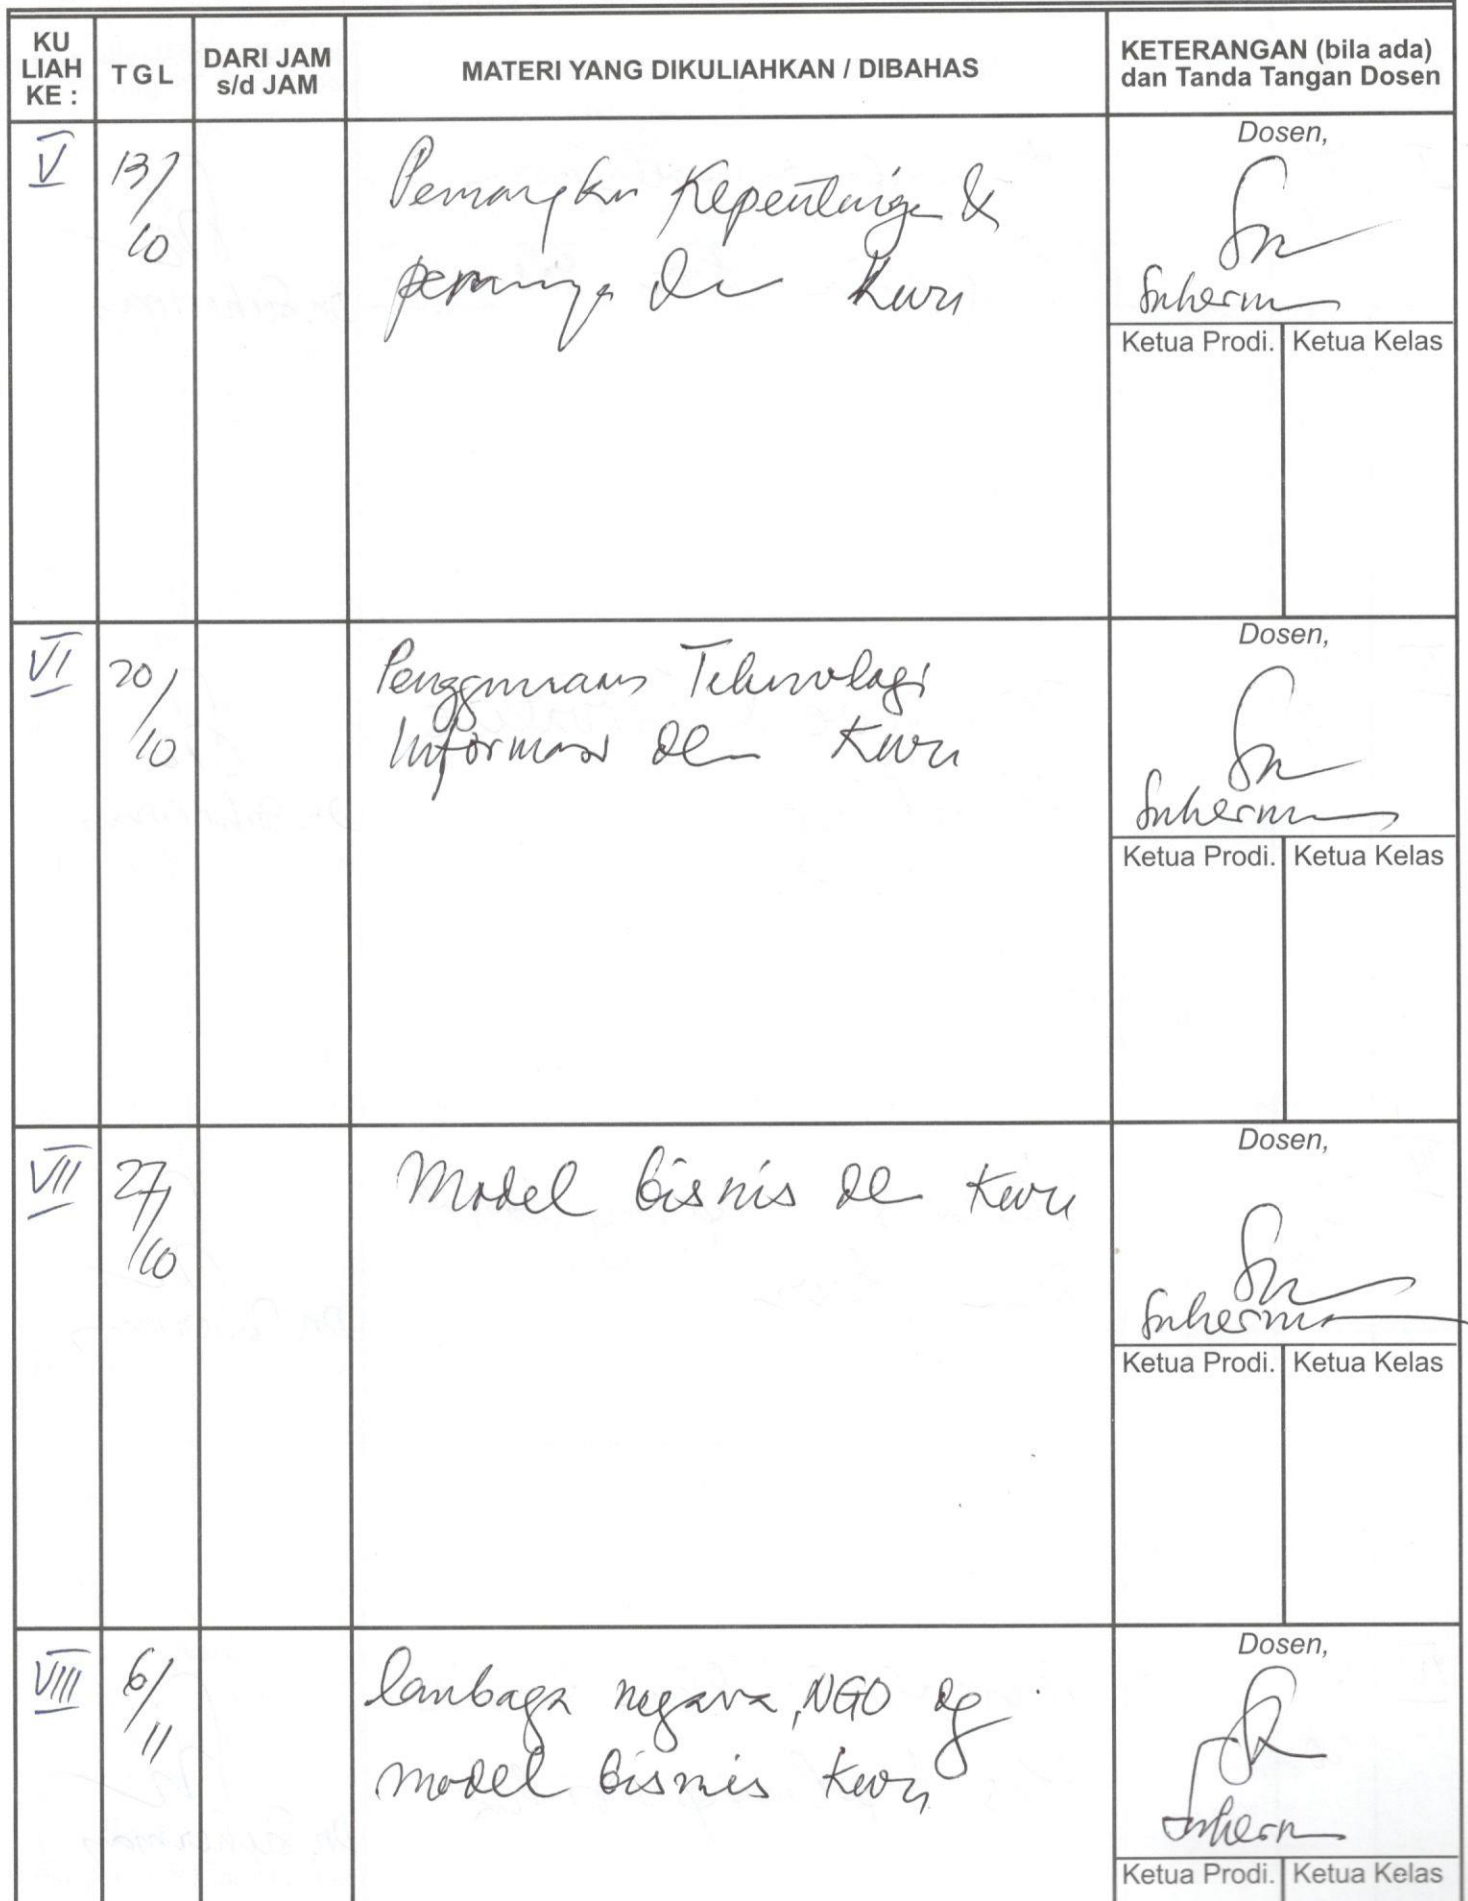 KU LIAH KE :
TGL
DARI JAM s/d JAM
MATERI YANG DIKULIAHKAN / DIBAHAS
KETERANGAN (bila ada) dan Tanda Tangan Dosen
V
13/10
Pemangku Kepentingan &
perannya dlm Kwu
Dosen,
Suherman
Ketua Prodi. Ketua Kelas
VI
20/10
Penggunaan Teknologi
Informasi dlm Kwu
Dosen,
Suherman
Ketua Prodi. Ketua Kelas
VII
27/10
Model bisnis dlm Kwu
Dosen,
Suherman
Ketua Prodi. Ketua Kelas
VIII
6/11
lembaga negara, NGO dg
model bisnis kwu
Dosen,
Suherman
Ketua Prodi. Ketua Kelas